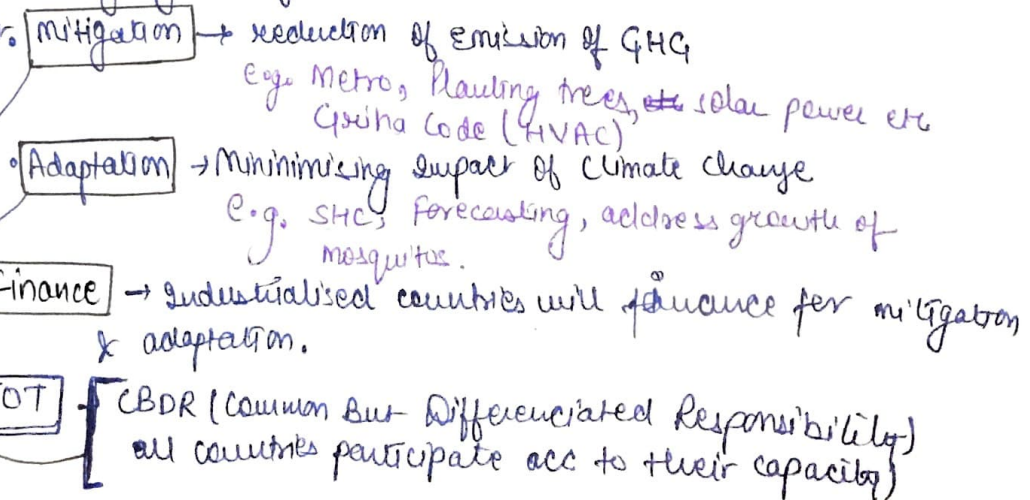 Mitigation → reduction of Emission of GHG
e.g. Metro, Planting trees, etc solar power etc
Griha Code (HVAC)
Adaptation → Mininimising Impact of Climate change
e.g. SHC, Forecasting, address growth of
mosquitos.
Finance → Industrialised countries will finance for mitigation
& adaptation.
OT CBDR (Common But Differenciated Responsibility)
all countries participate acc to their capacity)